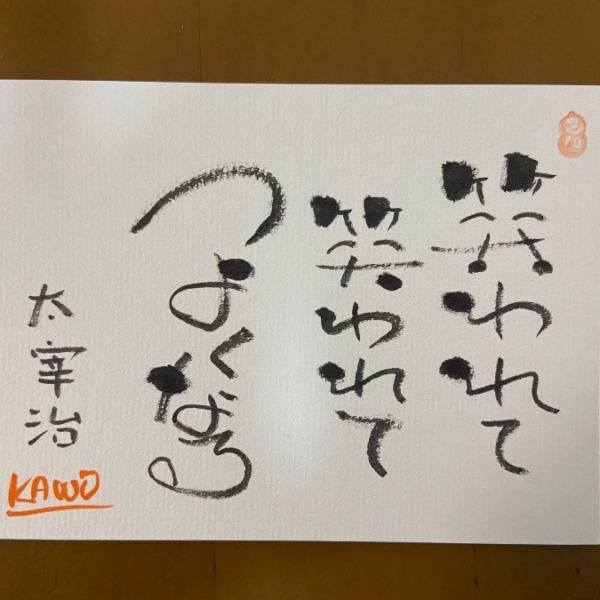 笑われて
笑われて
つよくなる
太宰治
KAWO